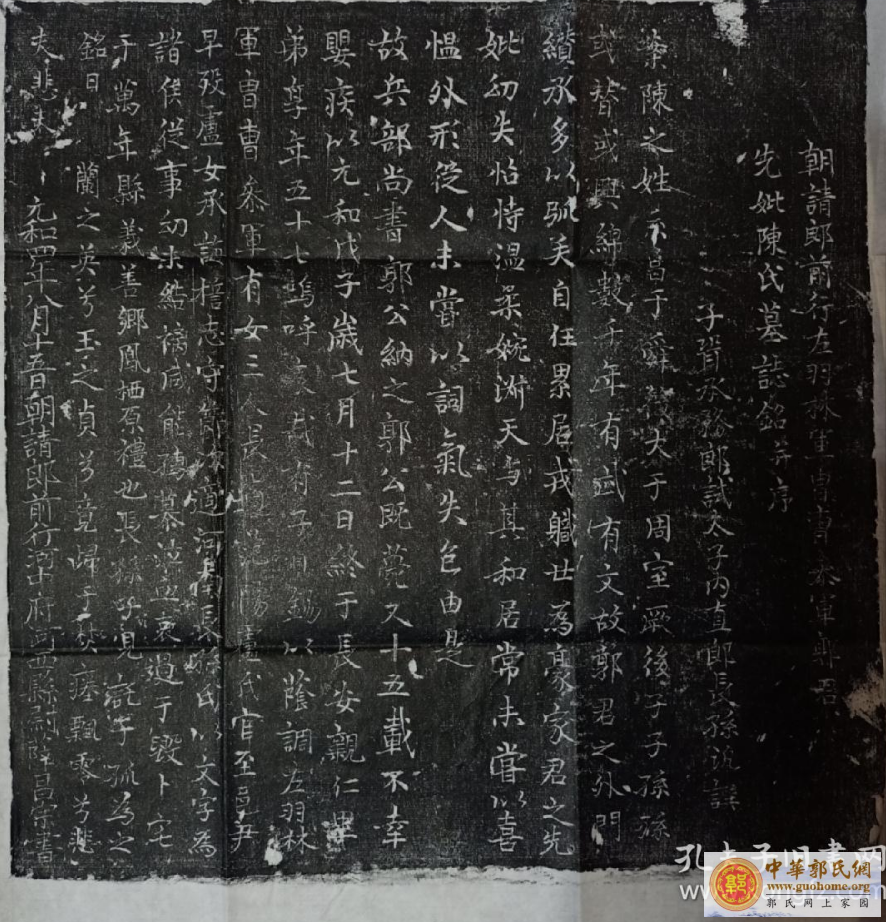 朝請郎前行左羽林軍胄曹參軍郭君
先妣陳氏墓誌銘并序
子胥承務郎試太子內直郎長孫 譔
案陳之姓 昌于舜 大于周室厥後子子孫孫
或替或興綿數千年有武有文故郭君之外門
纘承多以弧矢自任累居戎職世為豪家君之先
妣幼失怙恃溫柔婉淑天与其和居常未嘗以喜
愠外形從人未嘗以詞氣失色由是
故兵部尚書郭公納之郭公既薨又十五載不幸
嬰疾以元和戊子歲七月十二日終于長安親仁里
弟享年五十七嗚呼哀哉有子自錫以蔭調左羽林
軍胄曹參軍有女三人長 適范陽盧氏官至邑尹
早歿盧女承 誓志守節次適河南長孫氏以文字為
諸侯從事幼未結褵咸能 慕泣血哀過于毀卜宅
于萬年縣義善鄉鳳栖原禮也長孫子見 孤為之
銘曰
蘭之英兮玉之貞兮竟歸于 瘞飄零兮悲
夫悲夫 元和四年八月十五日朝請郎前行河中府 縣尉陳昌宗書
孔夫子旧书网
中華郭氏網
www.guohome.org
郭氏网上家园